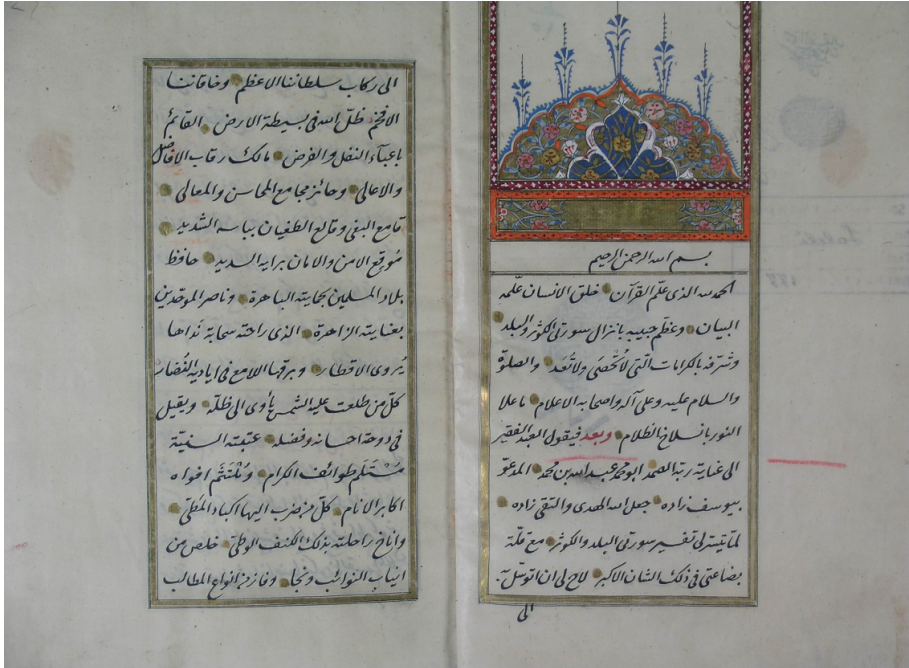 بسم الله الرحمن الرحيم
الحمد لله الذى علّم القرآن خلق الانسان علّمه
البيان وعظّم حبيبه بانزال سورتى الكوثر والبلد
وشرّفه بالكرامات الّتى لا تُحْصَى ولا تُعَد والصلوة
والسلام عليه وعلى آله واصحابه الاعلام ما علا
النور بانسلاخ الظلام وبعد فيقول العبد الفقير
الى عناية ربّه الصمد ابو محمد عبد الله بن محمد المدعوّ
بيوسف زاده جعل الله الهدى والتقى زاده
لمّا تيسّر لى تفسير سورتى البلد والكوثر مع قلّة
بضاعتى فى ذلك الشان الاكبر لاح لى ان اتوسّل به
الى
الى ركاب سلطاننا الاعظم وخاقاننا
الافخم ظلّ الله فى بسيطة الارض القائم
باعباء النفل والفرض مالك رقاب الافاضل
والاعالى وحائز مجامع المحاسن والمعالى
قامع البغى وقالع الطغيان بباسه الشديد
مُوقع الامن والامان برايه السديد حافظ
بلاد المسلمين بحمايته الباهرة وناصر الموحّدين
بعنايته الزاهرة الذى راحته سحابة نداها
يُروى الاقطار وبرقها اللامع فى اياديه النُضار
كلّ من طلعت عليه الشمس يأوى الى ظلّه ويقيل
فى دوحة احسانه وفضله عتبته السنيّة
مُسْتَلَم طوائف الكرام ومُلْتَثَم افواه
اكابر الانام كلّ من ضرب اليها اكباد المَطِىّ
واناخ راحلته بذلك الكنف الوطىّ خلص من
انياب النوائب ونجا وفاز من انواع المطالب